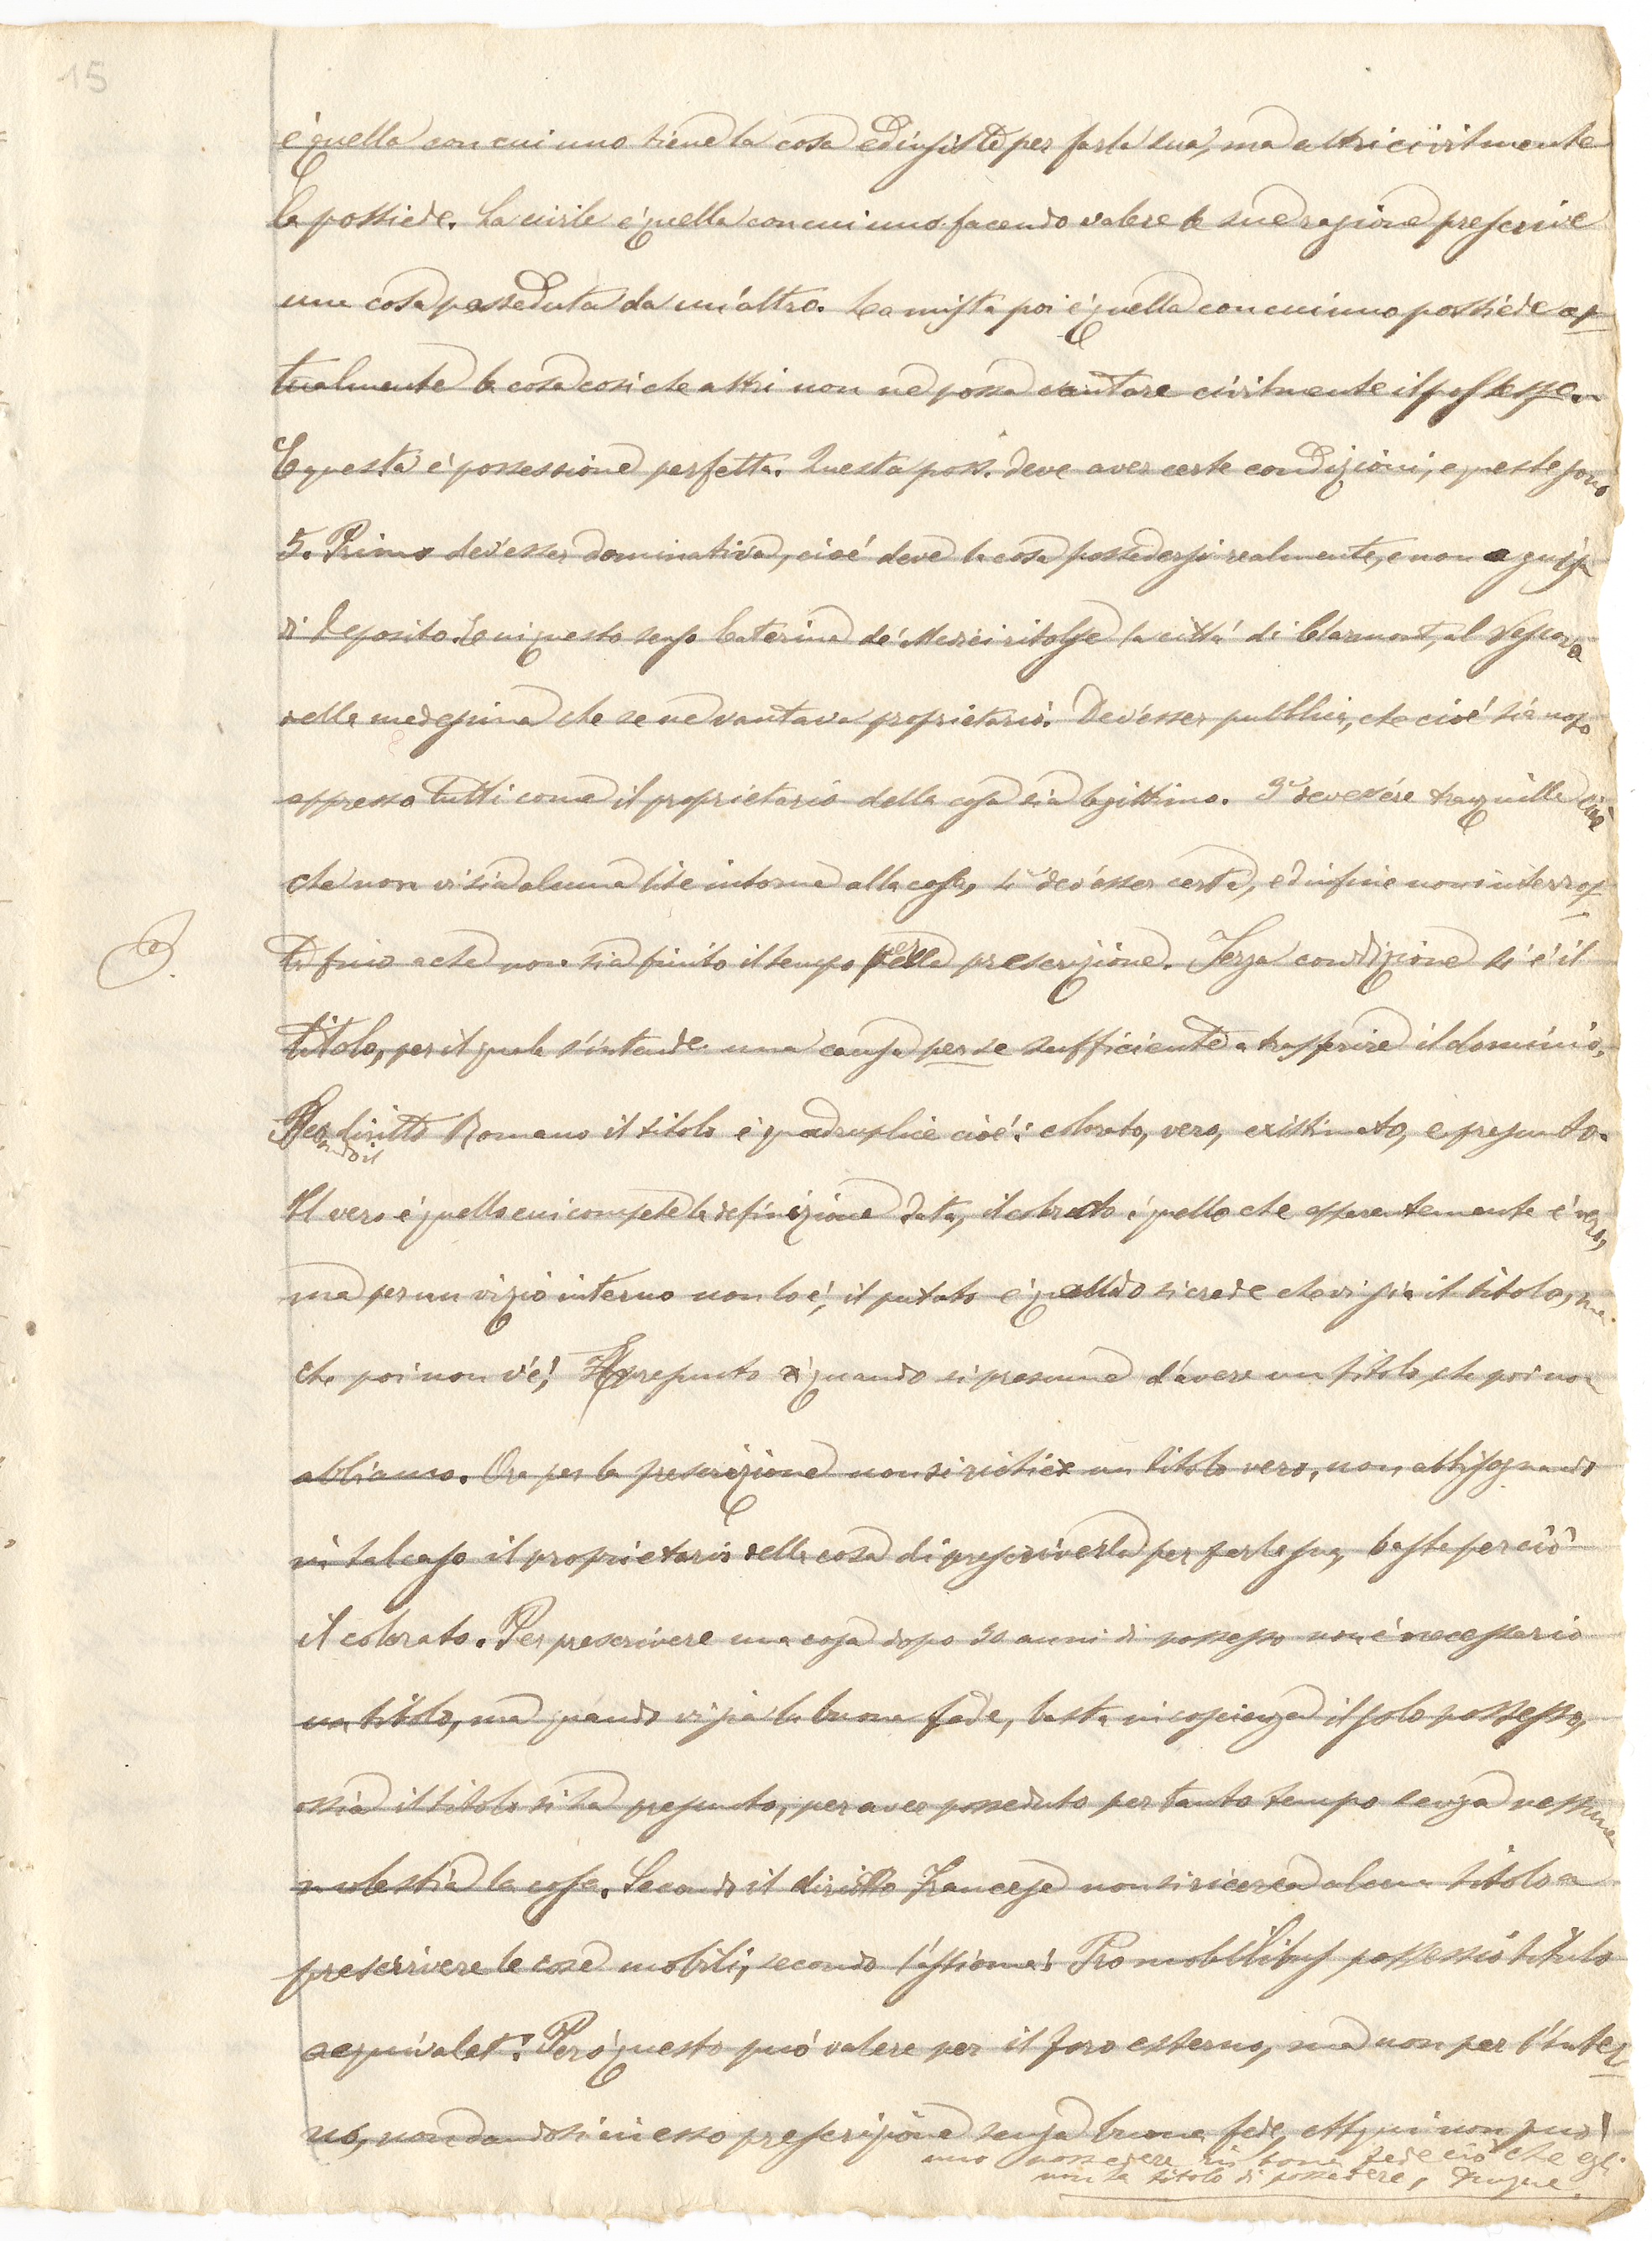 15
è quella con cui uno tiene la cosa ed insiste per farla sua, ma altri civilmente
la possiede. La civile è quella con cui uno facendo valere le sue ragione prescrive
una cosa posseduta da un'altro. La mista poi è quella con cui uno possiede at-
tualmente la cosa così che altri non ne possa vantare civilmente il possesso.
E questa è possessione perfetta. Questa poss. deve aver certe condizioni, e queste sono
5. Primo dev'esser dominativa, cioè deve la cosa possedersi realmente, e non a guisa
di deposito. E in questo senso Caterina de' Medici ritolse la città di Clarmont, al Vescovo
della medesima che se ne vantava proprietario. Dev'esser pubblica, che cioè sia noto
appresso tutti come il proprietario della cosa sia legittimo. 3° dev'essere tranquilla cioè
che non vi sia alcuna lite intorno alla cosa, 4° dev'esser certa, ed infine non interrot-
ta fino a che non sia finito il tempo della prescrizione. Terza condizione si è il
3.
titolo, per il quale s'intende una causa per se sufficiente a trasferire il dominio.
diritto Romano il titolo è quadruplice cioè: colorato, vero, existimato, e presunto.
Il vero è quello cui compete la definizione data, il colorato è quello che apparentemente è vero,
ma per un vizio interno non lo è, il putato è quando si crede che vi sia il titolo, ma
che poi non v'è, Il presunto è quando si presume d'avere un titolo che poi non
abbiamo. Ora per la prescrizione non si richiede un titolo vero, non abbisognando
in tal caso il proprietario della cosa di prescriverla per farla sua, basta perciò
il colorato. Per prescrivere una cosa dopo 30 anni di possesso non è necessario
un titolo, ma quando vi sia la buona fede, basta in coscienza il solo possesso,
ossia il titolo si ha presunto, per aver posseduto per tanto tempo senza nessuna
molestia la cosa. Secondo il diritto Francese non si ricerca alcun titolo a
prescrivere le cose mobili, secondo l'assioma: Pro mobilibus possessio titulo
aequivalet. Però questo può valere per il foro esterno, ma non per l'inter-
no, non dandosi in esso prescrizione senza buona fede, attqui non può
uno possedere in bona fede ciò che egli
non ha titolo di possedere, dunque.